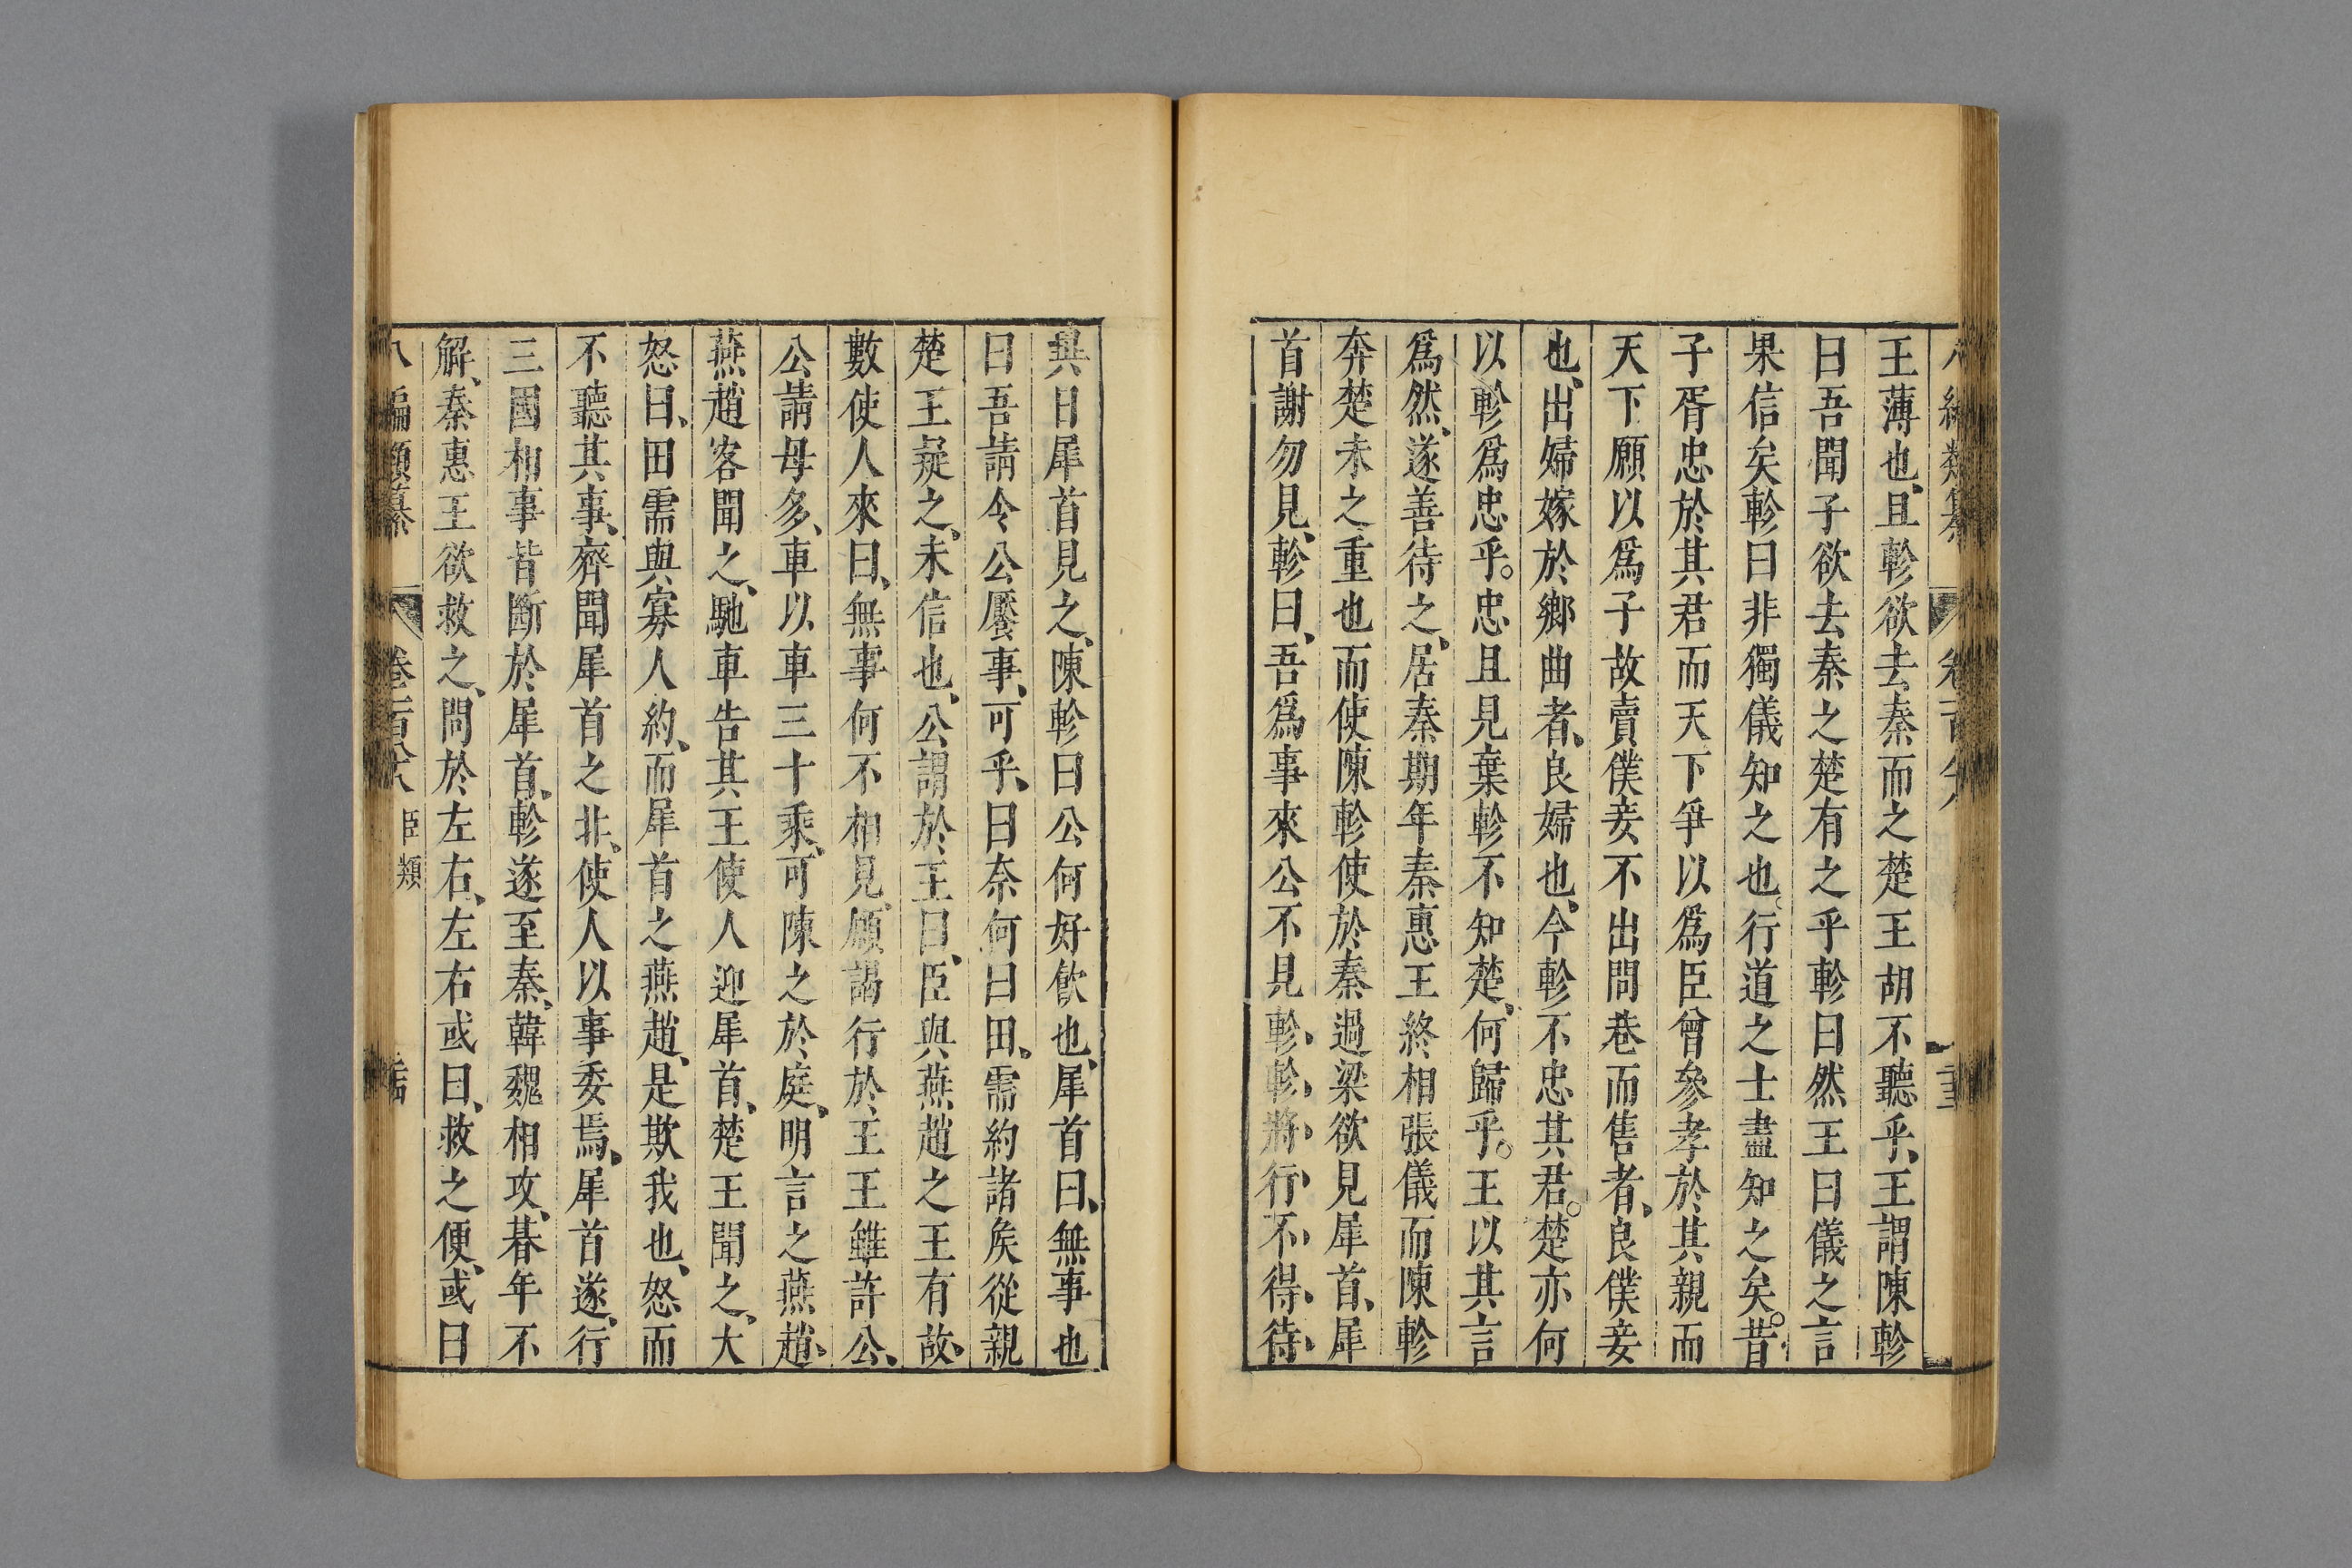 王薄也、且軫欲去秦而之楚王胡不聽乎、王謂陳軫
曰吾聞子欲去秦之楚有之乎軫曰然王曰儀之言
果信矣軫曰非獨儀知之也。行道之士盡知之矣。昔
子胥忠於其君而天下爭以爲臣曾參孝於其親而
天下願以爲子故賣僕妾不出問巷而售者、良僕妾
也、出婦嫁於鄉曲者、良婦也、今軫不忠其君。楚亦何
以軫爲忠乎。忠且見棄軫不知楚、何歸乎。王以其言
爲然、遂善待之、居秦期年秦惠王終相張儀而陳軫
奔楚未之重也而使陳軫使於秦過梁欲見犀首、犀
首謝勿見、軫曰、吾爲事來公不見軫、軫、將、行、不、得、待、
異日犀首見之、陳軫曰公何好飲也、犀首曰、無事也
曰吾請令公饜事、可乎、曰奈何曰田、需約諸矦從親
楚王疑之、未信也、公謂於王曰、臣與燕趙之王有故、
數使人來曰、無事何不相見、願謁行於王王雖許公、
公請毋多、車以車三十乘、可陳之於庭、明言之燕趙、
燕趙客聞之、馳車告其王使人迎犀首、楚王聞之、大
怒曰、田需與寡人約、而犀首之燕趙、是欺我也、怒而
不聽其事、齊聞犀首之非、使人以事委焉、犀首遂、行
三國相事皆斷於犀首、軫遂至秦、韓魏相攻、朞年不
解、秦惠王欲救之、問於左右、左右或曰、救之便、或曰
八編類纂 卷一百八 臣類